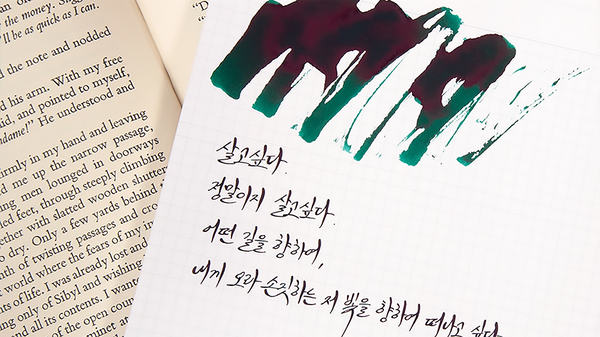 the money. Sugg
'll be as quick as I can.
the note and nodded
his arm. With my free
id, and pointed to myself,
ndame!" He understood and
irmly in my hand and leaving
d me up the narrow passage,
ing men lounged in doorways
led feet, through steeply climbing
ether with slatted wooden shutter
o dry. Only a few yards behind
nth of twisting passages and cro
world where the fears of my in
nts of life. I was already lost and
ing only of Sibyl and wishing
and all its contents. I wante
of the open coun
minet a
"De
살고싶다.
정말이지 살고싶다.
어떤 길을 향하여,
내게 오라 손짓하는 저 빛을 향하여 떠나고 싶다